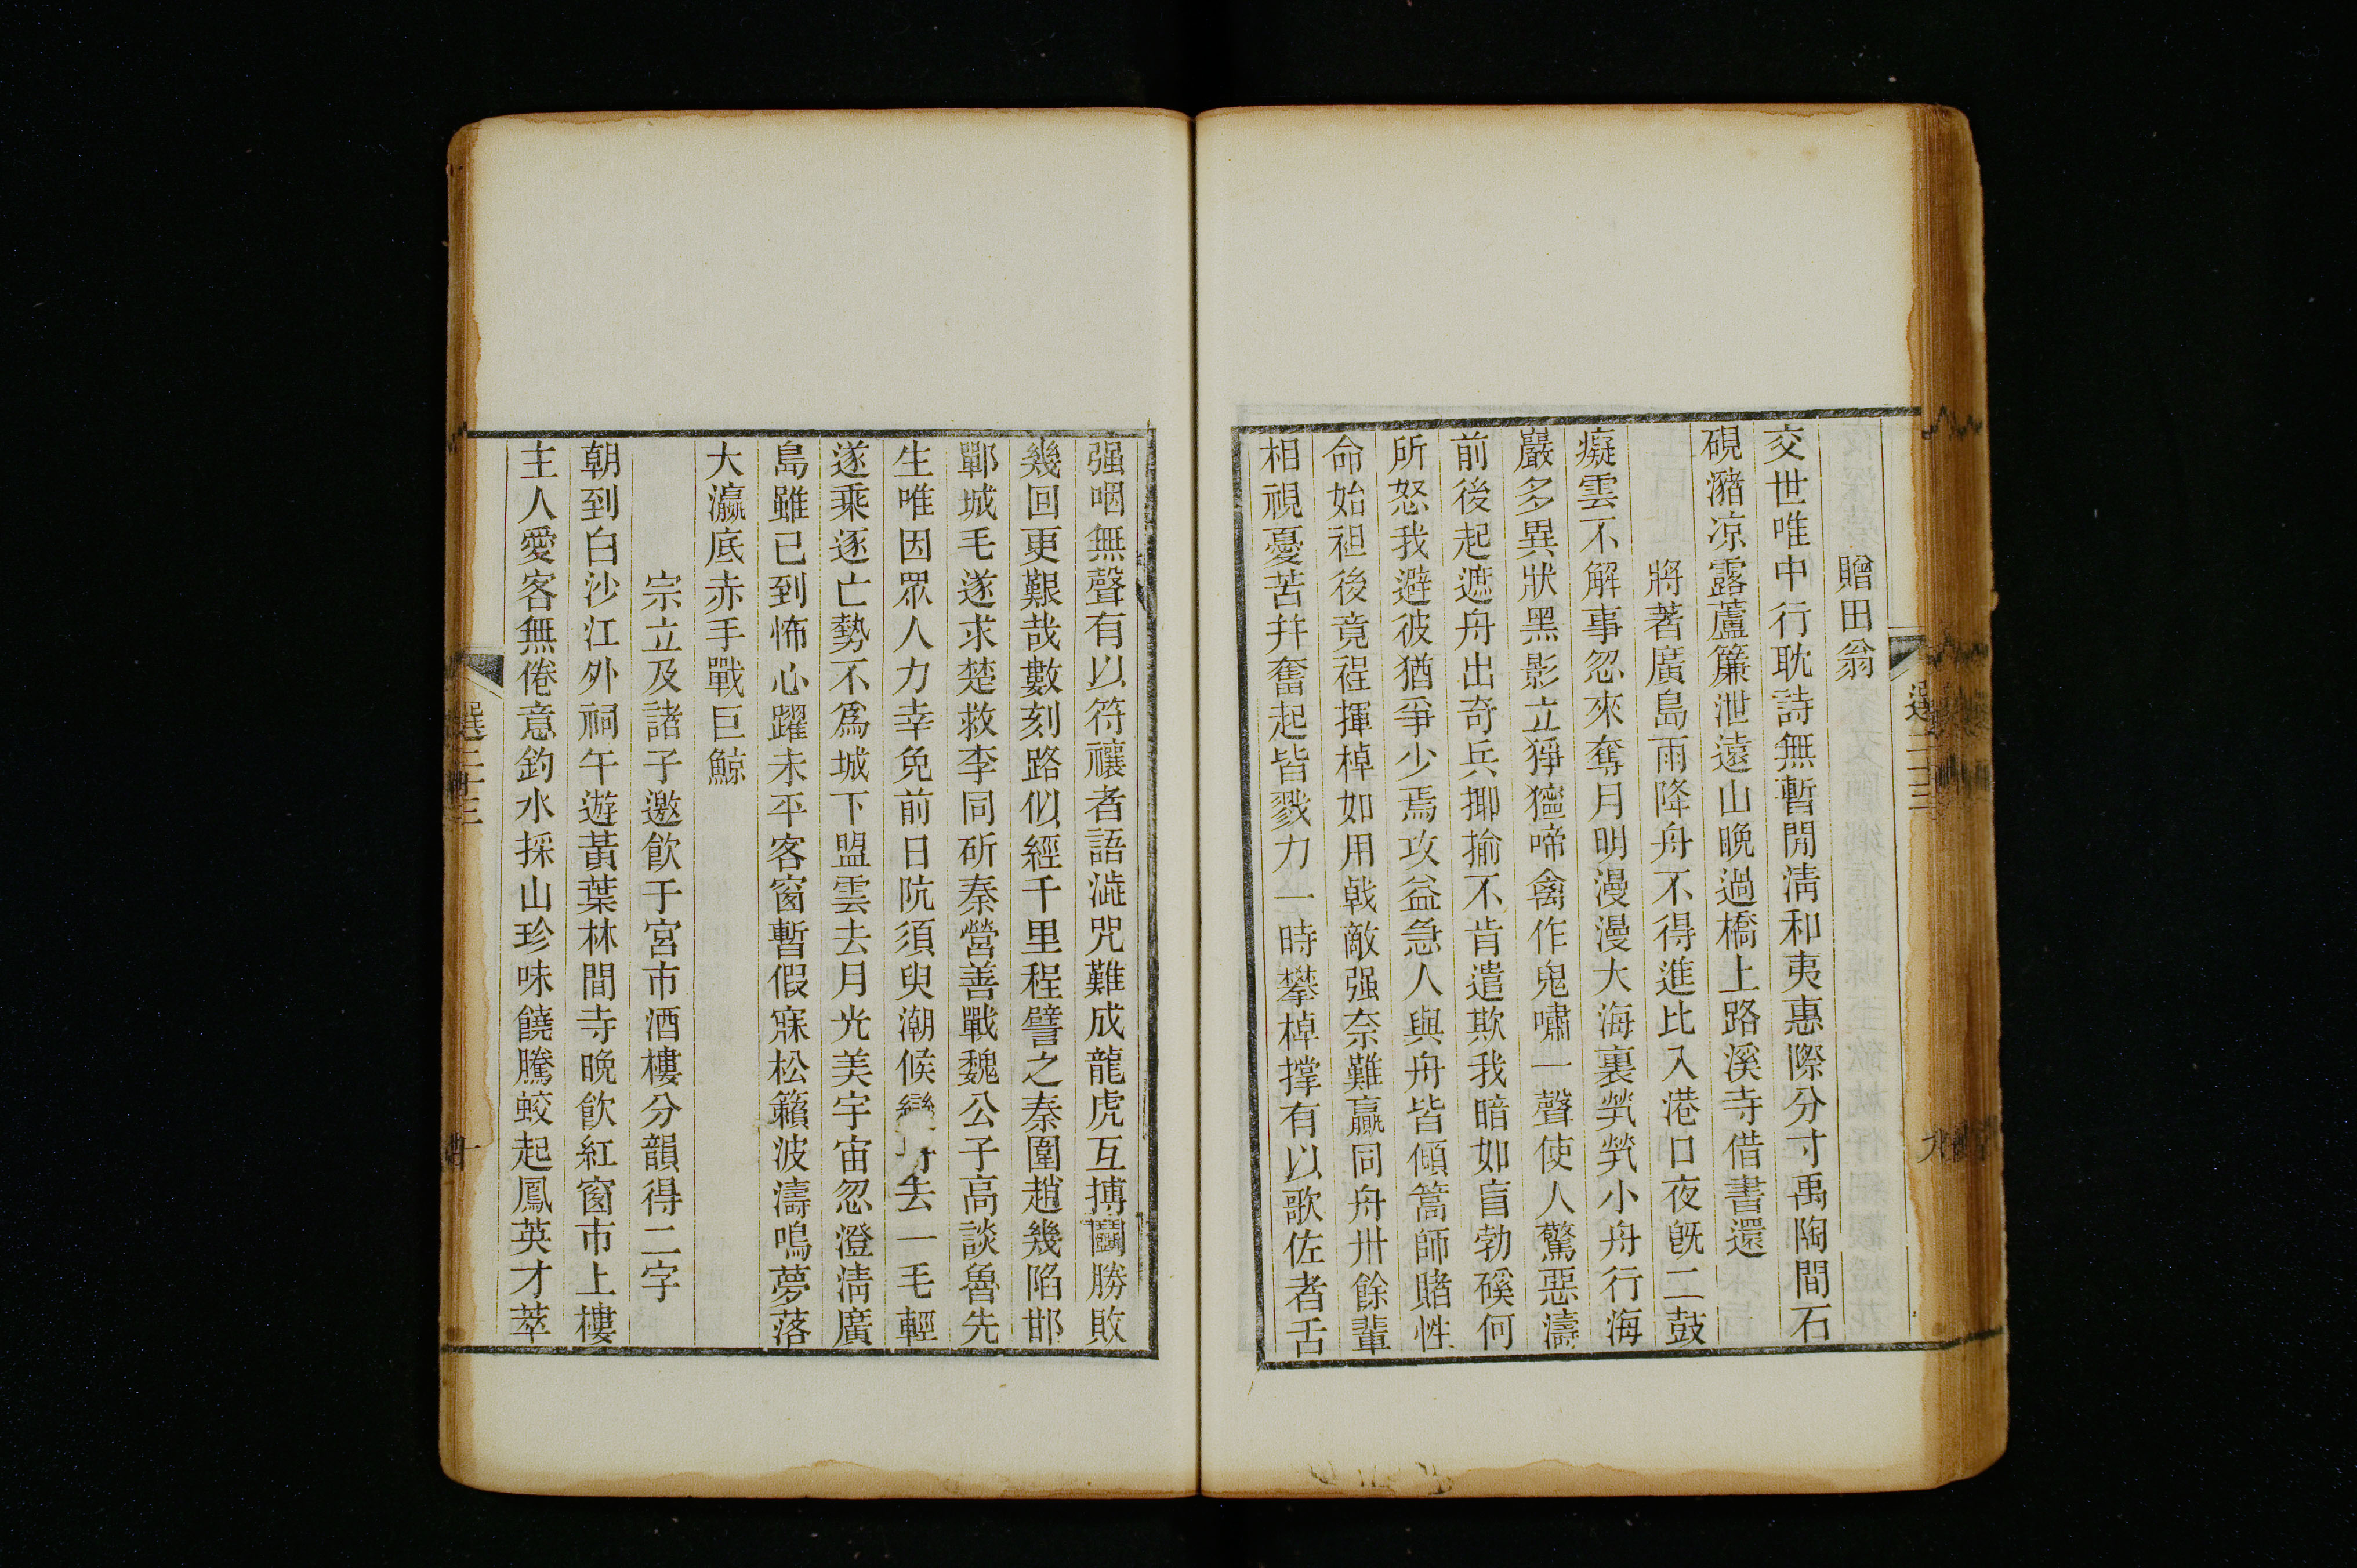 贈田翁
交世唯中行耽詩無暫閒淸和夷惠際分寸禹陶間石
硯瀦凉露蘆簾泄遠山晩過橋上路溪寺借書還
將著廣島雨降舟不得進比入港口夜旣二鼓
癡雲不解事忽來奪月明漫漫大海裏煢煢小舟行海
巖多異狀黑影立猙獰啼禽作鬼嘯一聲使人驚惡濤
前後起遮舟出奇兵揶揄不肯遣欺我暗如盲勃磎何
所怒我避彼猶爭少焉攻益急人與舟皆傾篙師賭性
命始袒後竟裎揮棹如用戟敵强奈難贏同舟卅餘輩
相視憂苦幷奮起皆戮力一時攀棹撑有以歌佐者舌
强咽無聲有以符禳者語澁咒難成龍虎互搏鬭勝敗
幾回更艱哉數刻路似經千里程譬之秦圍趙幾陷邯
鄲城毛遂求楚救李同斫秦營善戰魏公子高談魯先
生唯因眾人力幸免前日阬須臾潮候變去一毛輕
遂乘逐亡勢不爲城下盟雲去月光美宇宙忽澄淸廣
島雖已到怖心躍未平客窗暫假寐松籟波濤鳴夢落
大瀛底赤手戰巨鯨
宗立及諸子邀飮于宮市酒樓分韻得二字
朝到白沙江外祠午遊黃葉林間寺晩飮紅窗市上樓
主人愛客無倦意釣水採山珍味饒騰蛟起鳳英才萃